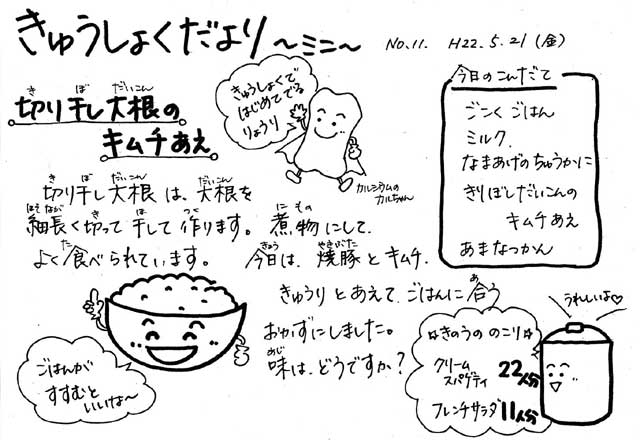 きゅうしょくだより〜ミニ〜
No.11. H22.5.21(金)
切り干し大根の
キムチあえ
きゅうしょくで
はじめてでる
りょうり
カルシウムの
カルちゃん
今日のこんだて
ごこくごはん
ミルク
なまあげのちゅうかに
きりぼしだいこんの
キムチあえ
あまなつかん
切り干し大根は、大根を
細長く切って干して作ります。煮物にして、
よく食べられています。今日は、焼豚とキムチ、
きゅうりとあえて、ごはんに合う
おかずにしました。
味は、どうですか?
ごはんが
すすむと
いいな〜
うれしいよ♡
☆きのうののこり☆
クリーム
スパゲティ 22人分
フレンチサラダ 11人分